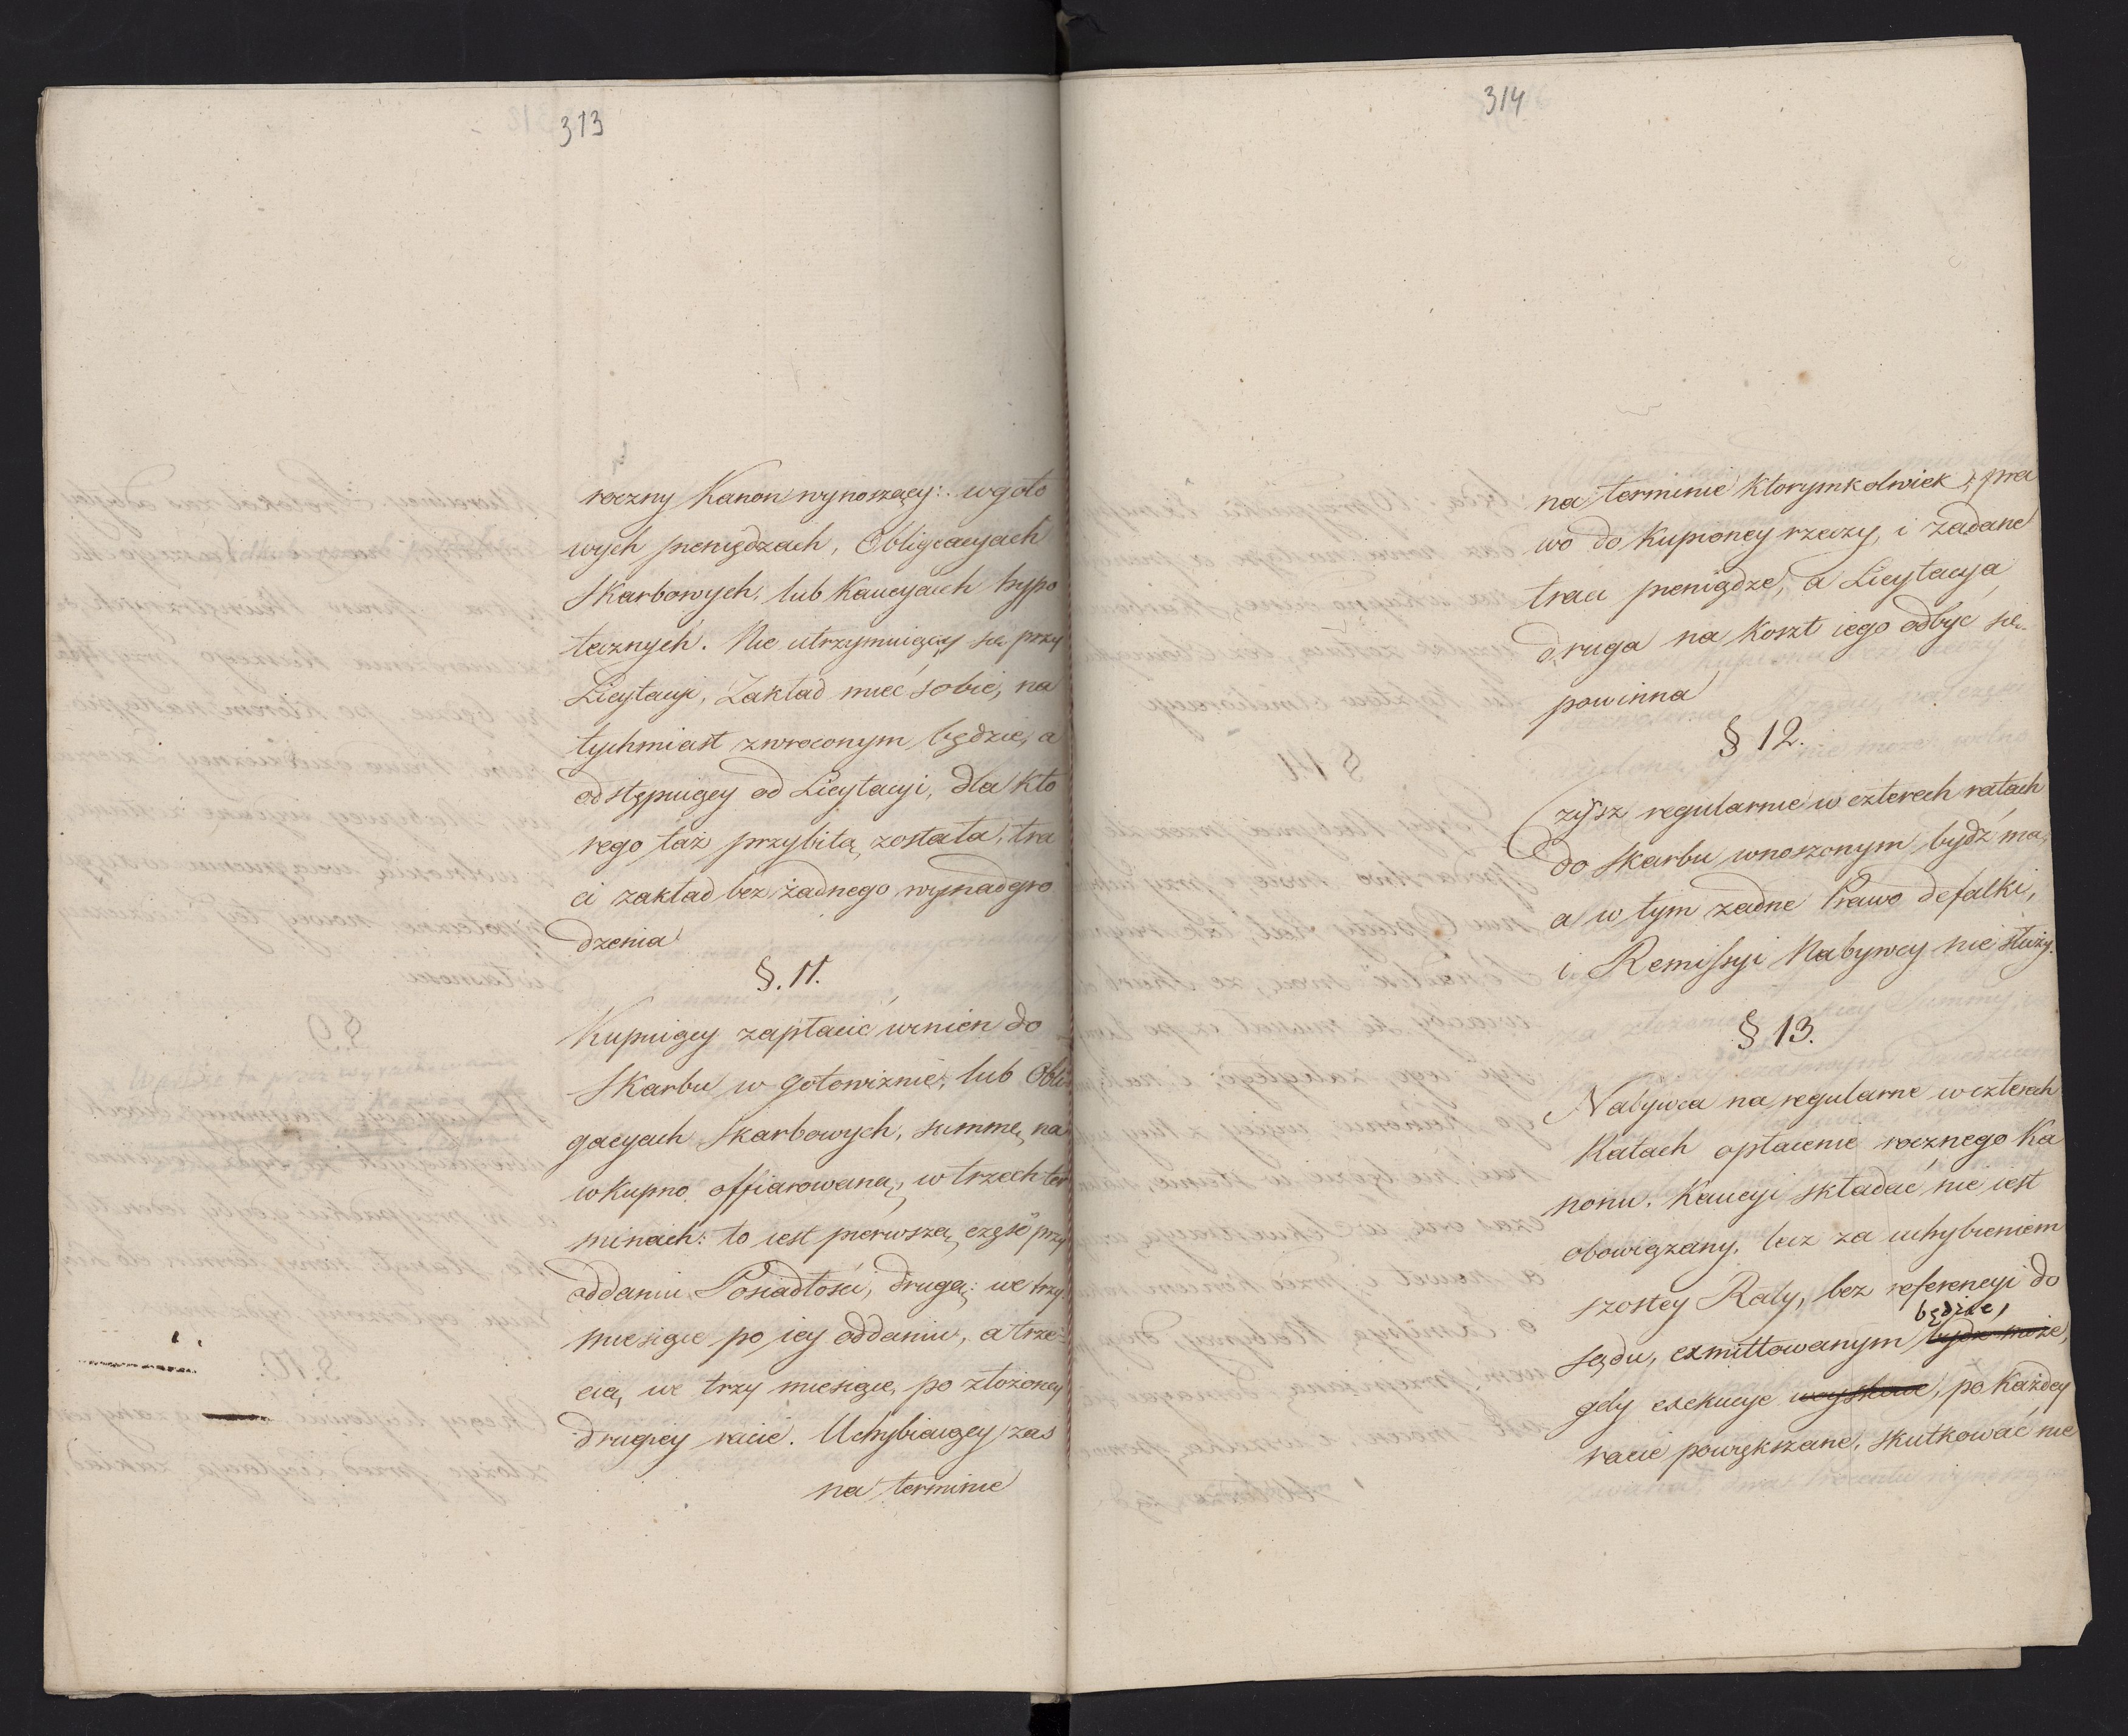 313
roczny Kanon wynoszący: w goto
wych pieniędzach, Obligacyach
Skarbowych, lub Kaucyach hypo
tecznych. Nie utrzymuiący się przy
Licytacyi, Zakład mieć sobie, na
tychmiast zwroconym będzie, a
odstępuiący od Licytacyi, dla kto
rego taż przybitą została, tra
ci zakład bez żadnego wynadgro
dzenia
§. 11.
Kupuiący zapłacić winien do
Skarbu w gotowiznie, lub Obli
gacyach Skarbowych, summę na
wkupno offiarowaną, w trzech ter
minach: to iest pierwszą część przy
oddaniu Posiadłości, drugą: we trzy
miesiące po iey oddaniu, a trze
cią we trzy miesiące, po złożoney
drugiey racie. Uchybiaiący zas
na terminie
314
na terminie ktorymkolwiek, pra
wo do kupioney rzeczy, i zadane
traci pieniądze, a Licytacya
druga na koszt iego odbyć się
powinna
§ 12.
Czysz regularnie w czterech ratach
do Skarbu wnoszonym bydź ma,
a w tym żadne Prawo defalki,
i Remissyi Nabywcy nie służy.
§ 13.
Nabywca na regularne w czterech
Ratach opłacenie rocznego Ka
nonu, Kaucyi składać nie iest
obowiązany, lecz za uchybieniem
szostey Raty, bez referencyi do
będzie,
Sądu, exmittowanym bydz może,
gdy exekucye woyskowe, po każdey
racie powiększane, skutkować nie